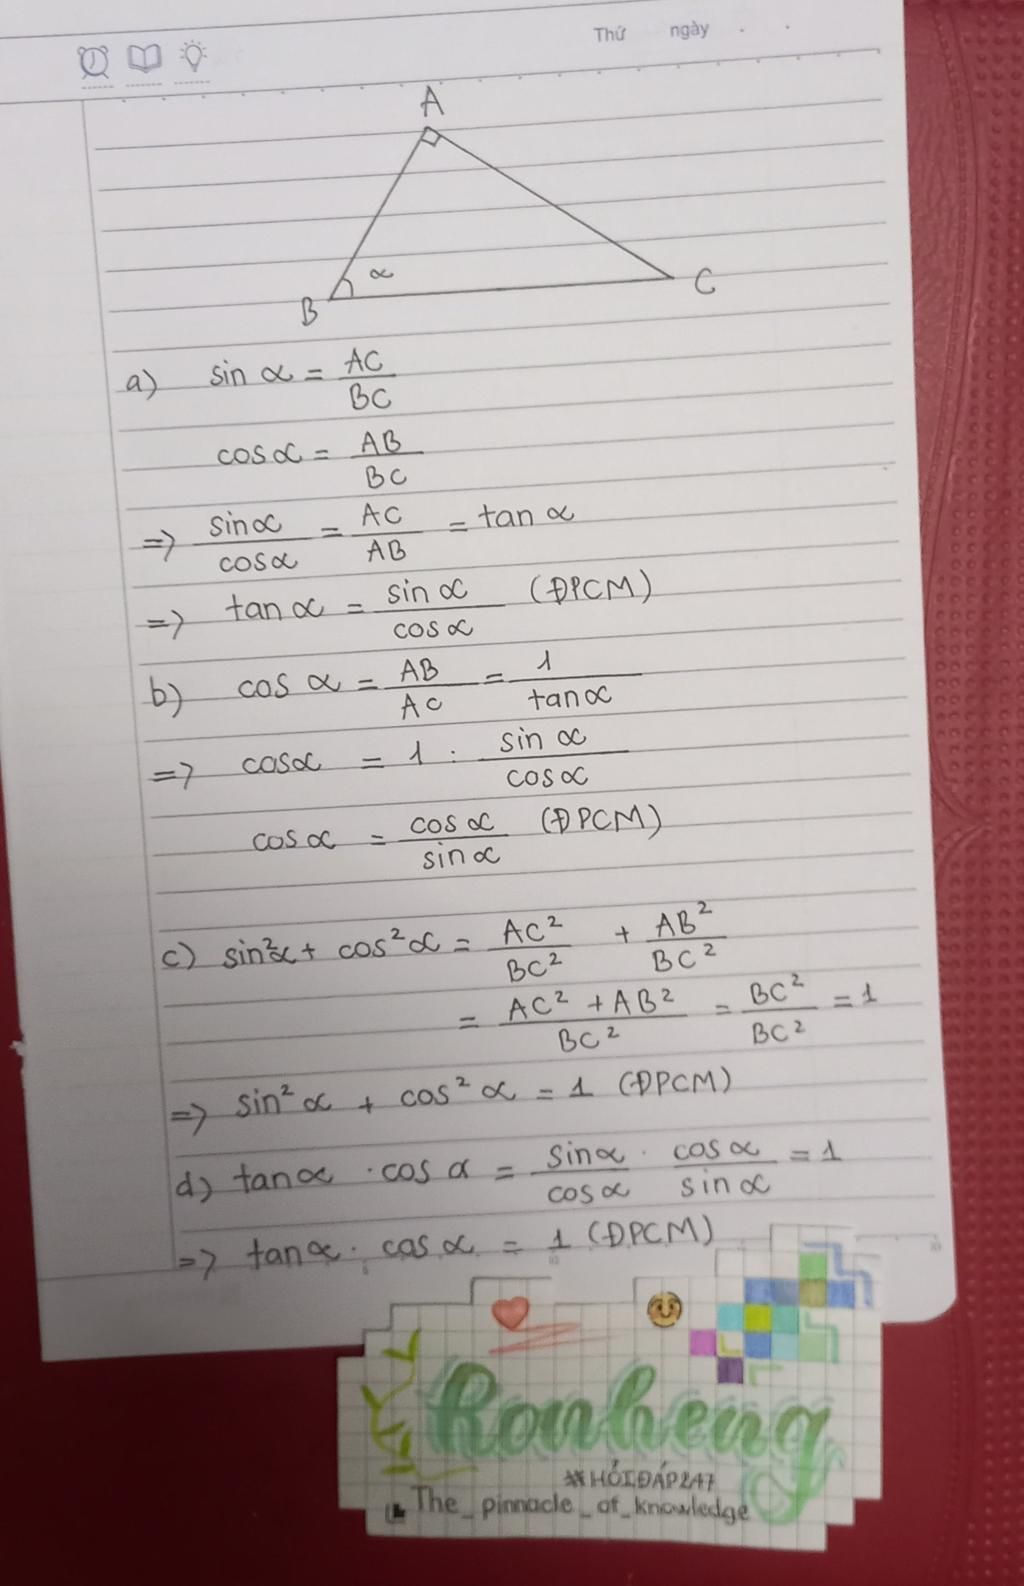 Thứ ngày . .
A
α
B C
a) sin α = AC/BC
cosα = AB/BC
=> sinα/cosα = AC/AB = tan α
=> tan α = sin α/cos α (ĐPCM)
b) cos α = AB/AC = 1/tanα
=> cosα = 1 : sin α/cosα
cos α = cos α/sin α (ĐPCM)
c) sin²α + cos²α = AC²/BC² + AB²/BC²
= AC² + AB²/BC² = BC²/BC² = 1
=> sin² α + cos² α = 1 (ĐPCM)
d) tanα . cos α = sinα/cosα . cosα/sinα = 1
=> tanα . cos α = 1 (ĐPCM)
Ronheng
#HỎIĐÁP247
The_pinnacle_of_knowledge